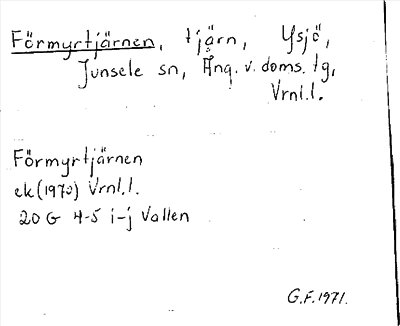 Förmyrtjärnen, tjärn, Ysjö,
Junsele sn, Ång. v. doms. tg,
Vrnl.l.
Förmyrtjärnen
ek (1970) Vrnl.l.
20 G 4-5 i-j Vallen
G.F. 1971.